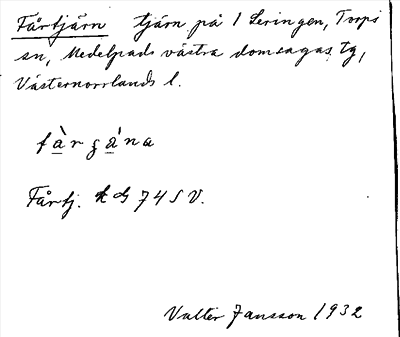 Fårtjärn tjärn på 1 Leringen, Torps
sn, Medelpads västra domsagas tg,
Västernorrlands l.
fàrgána
Fårtj. kG 74 S V.
Valter Jansson 1932